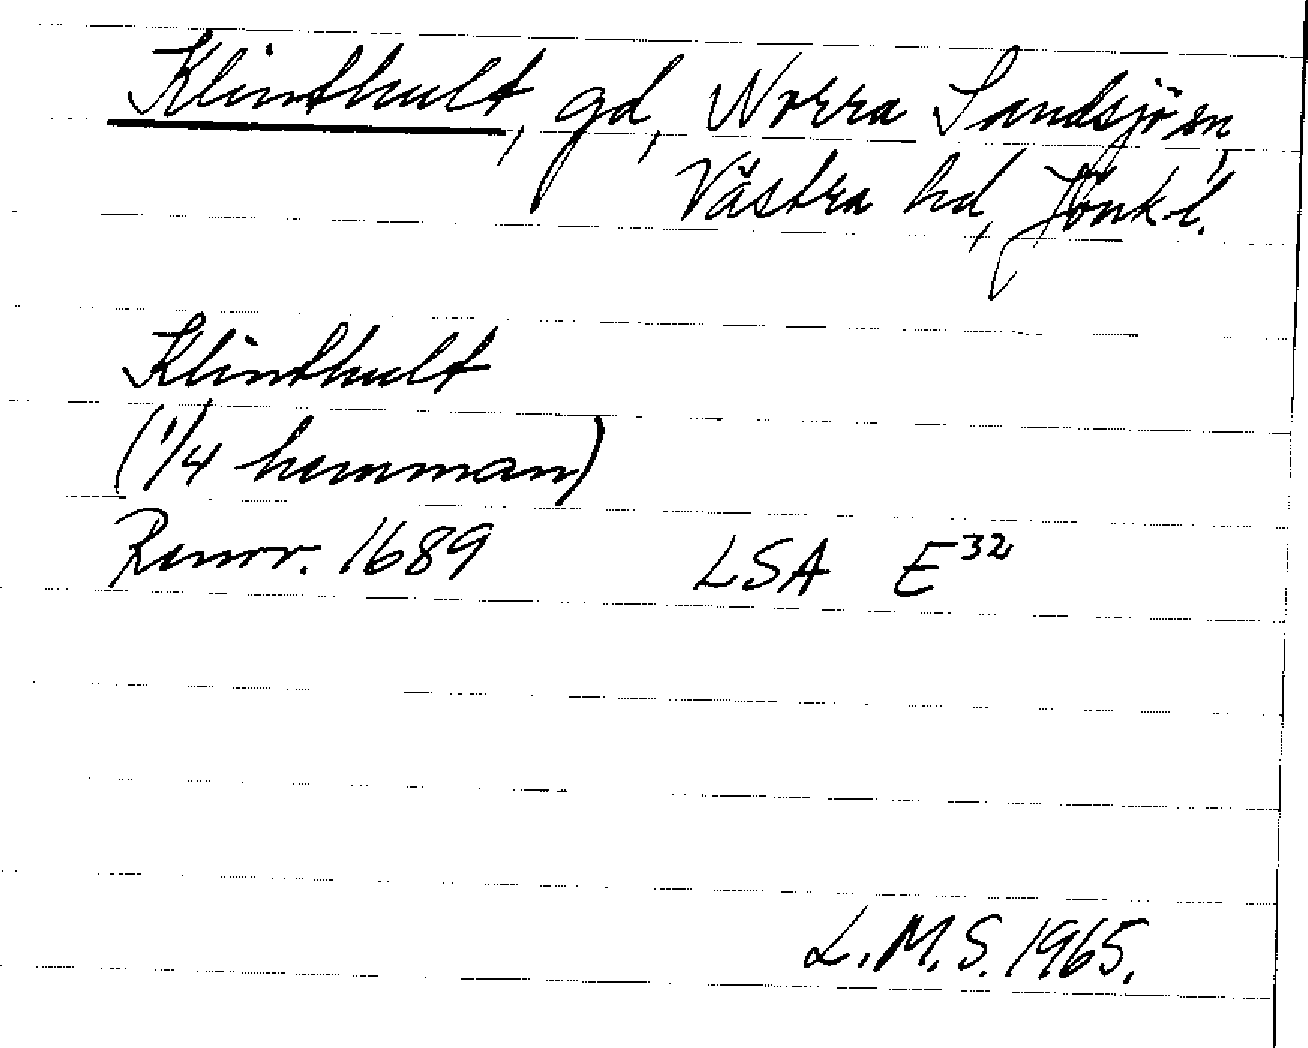 Klinthult, gd, Norra Sandsjö sn,
Västra hd, Jönk l.
Klinthult
(1/4 hemman)
Renov. 1689 LSA E³²
L.M.S. 1965.